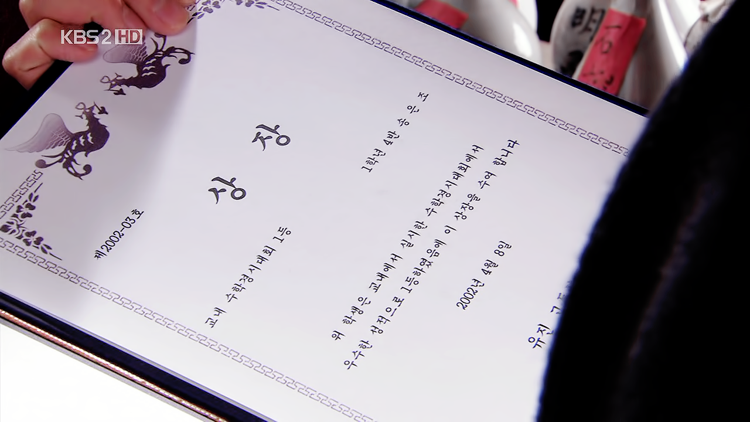 KBS2 HD
제2002-03호
상 장
교내 수학경시대회 1등
1학년 4반 송 은 조
위 학생은 교내에서 실시한 수학경시대회에서
우수한 성적으로 1등하였음에 이 상장을 수여 합니다
2002년 4월 8일
유진